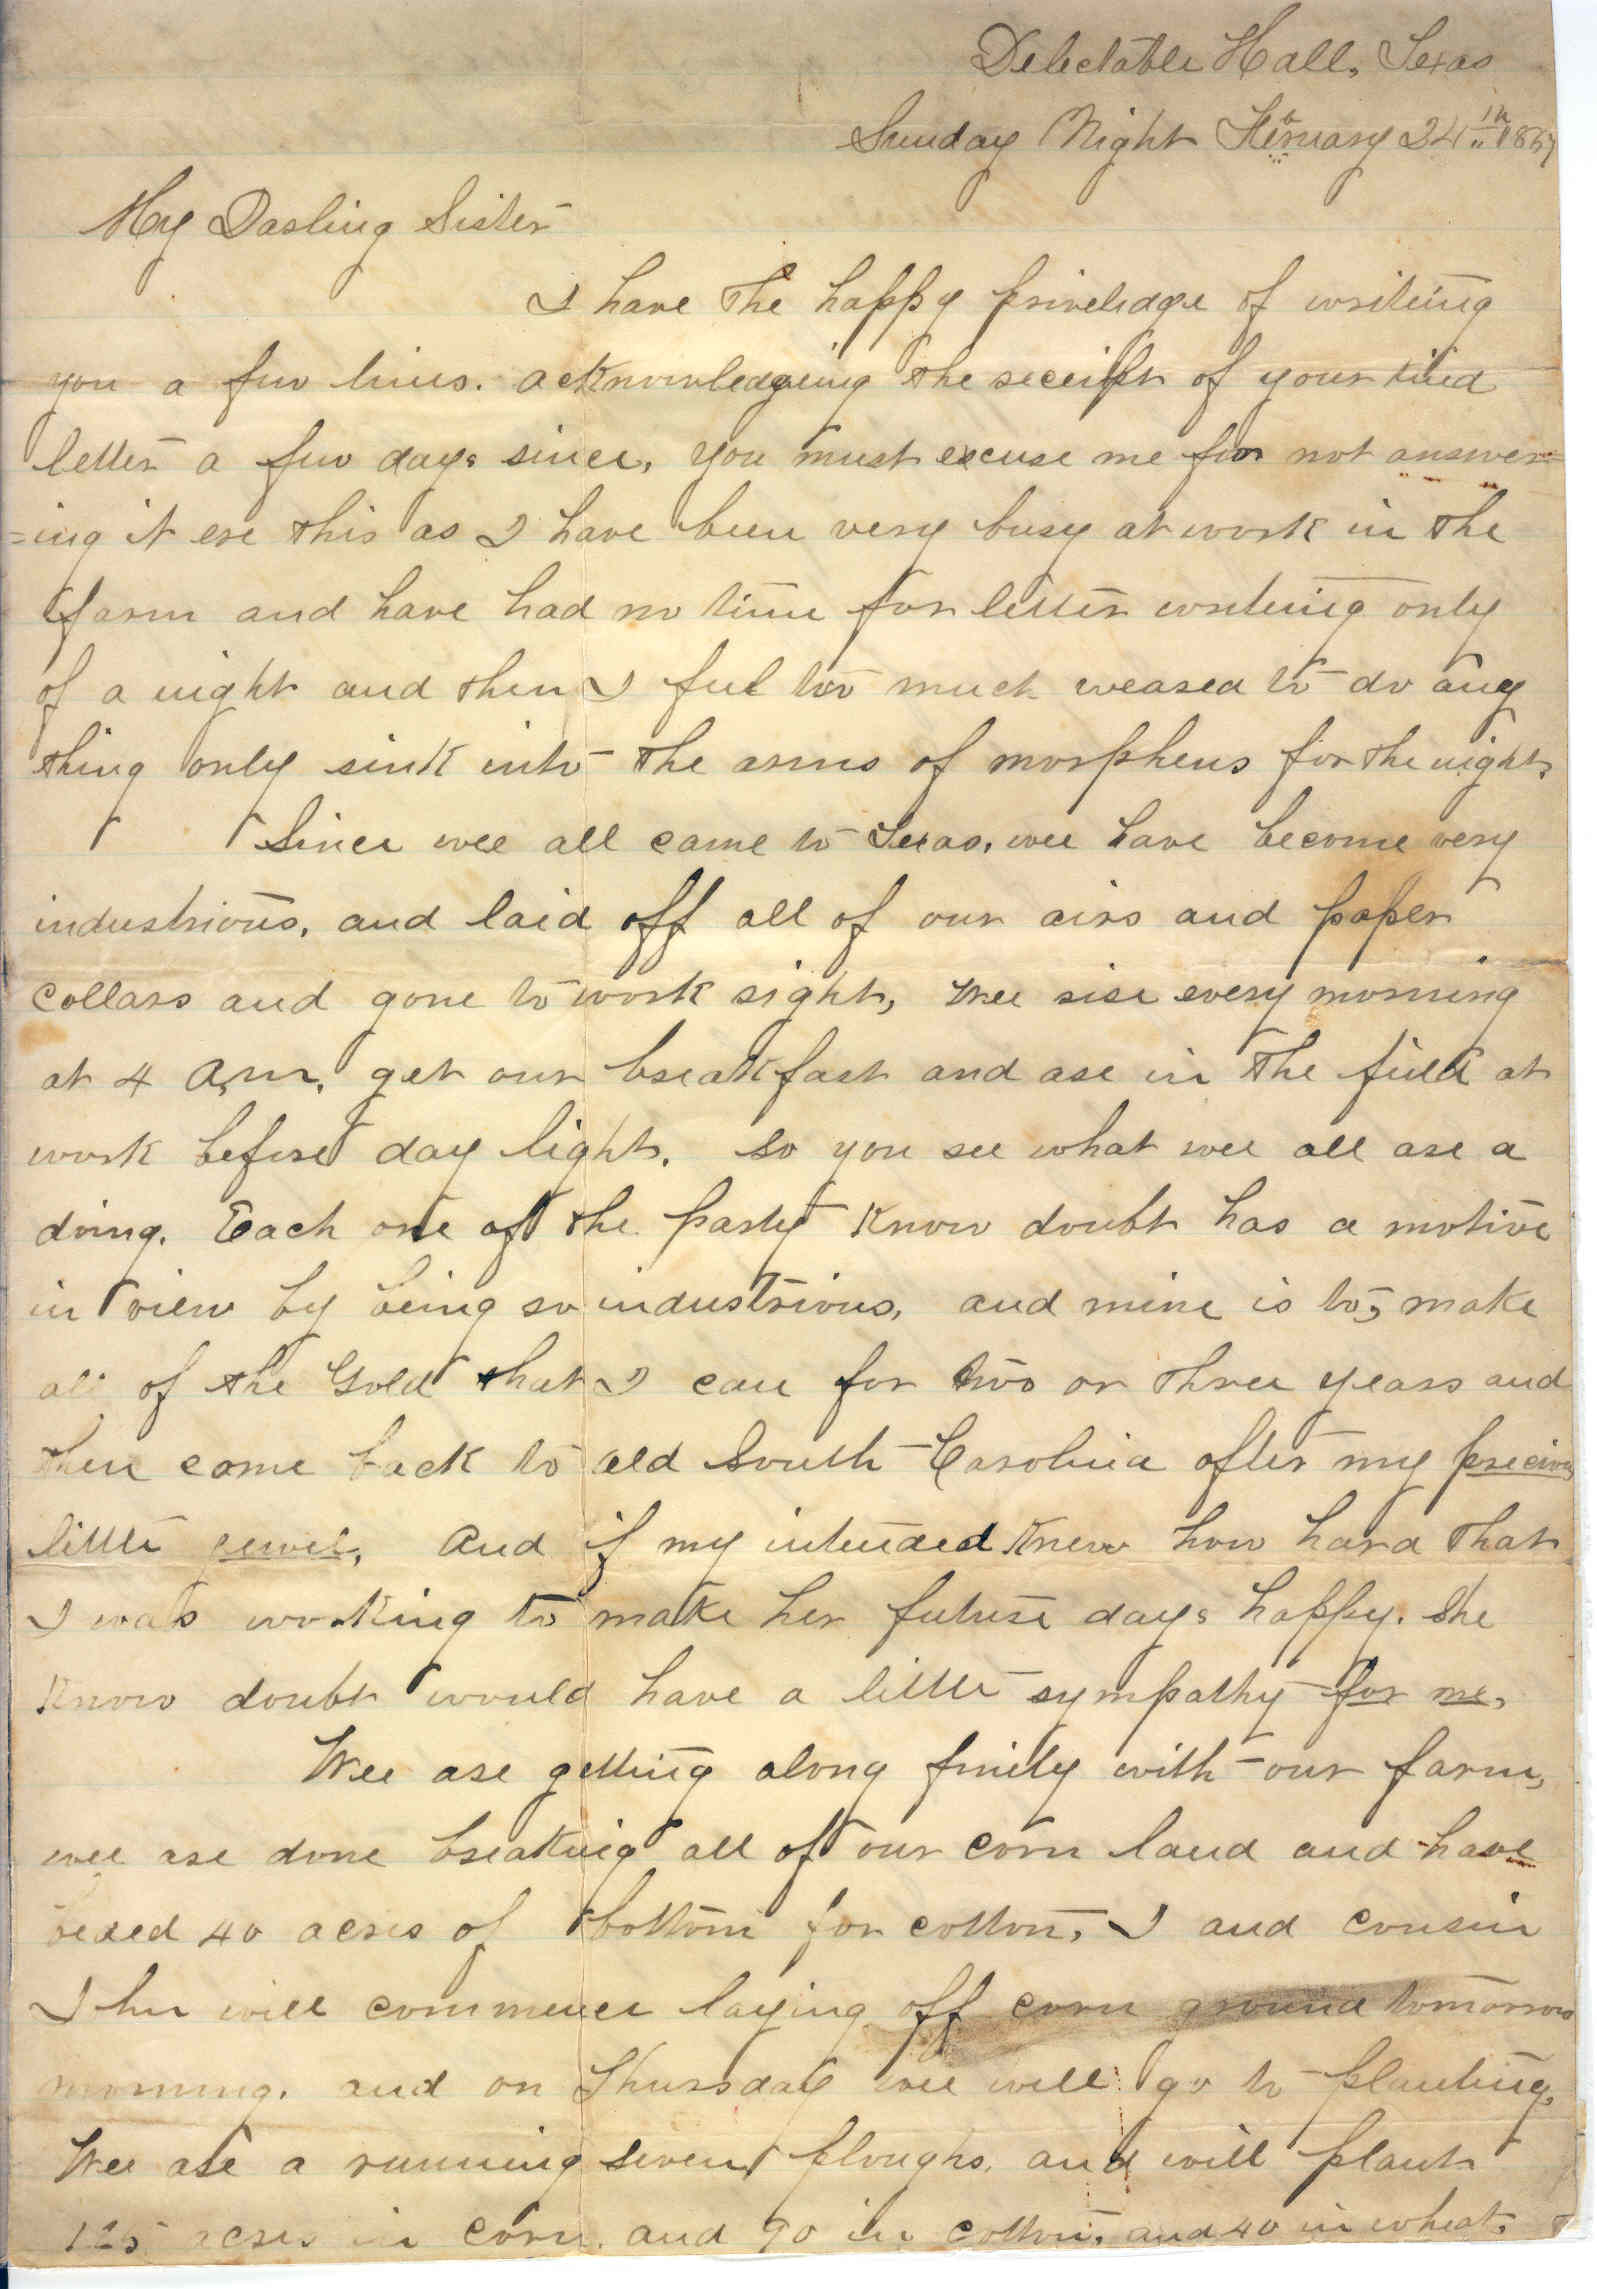 Delectable Hall, Texas
Sunday Night Febuary 24th 1867
My Darling Sister
I have the happy priveledge of writeing
you a few lines. acknowledgeing the receipt of your kind
letter a few days since, you must excuse me for not answer=
=ing it ere this as I have been very busy at work in the
farm and have had no time for letter writeing only
of a night and then I feel too much weared to do any
thing only sink into the arms of morpheus for the night,
Since wee all came to Texas, wee have become very
industrious, and laid off all of our airs and paper
collars and gone to work right, Wee rise every morning
at 4 a,m, get our breakfast and are in the field at
work before day light, So you see what wee all are a
doing. Each one of the party know doubt has a motive
in view by being so industrious, and mine is to, make
all of the Gold that I can for two or three years and
then come back to old South Carolina after my precious
little jewel, And if my intended knew how hard that
I was working to make her future days happy. She
know doubt would have a little sympathy for me,
Wee are getting along finely with our farm,
wee are done breaking all of our corn land and have
beded 40 acres of bottom for cotton, I and cousin
Jhn will commence laying off corn ground tomorrow
morning. and on Thursday wee will go to planting,
Wee are a running seven ploughs, and will plant
125 acres in corn, and 90 in cotton, and 40 in wheat,